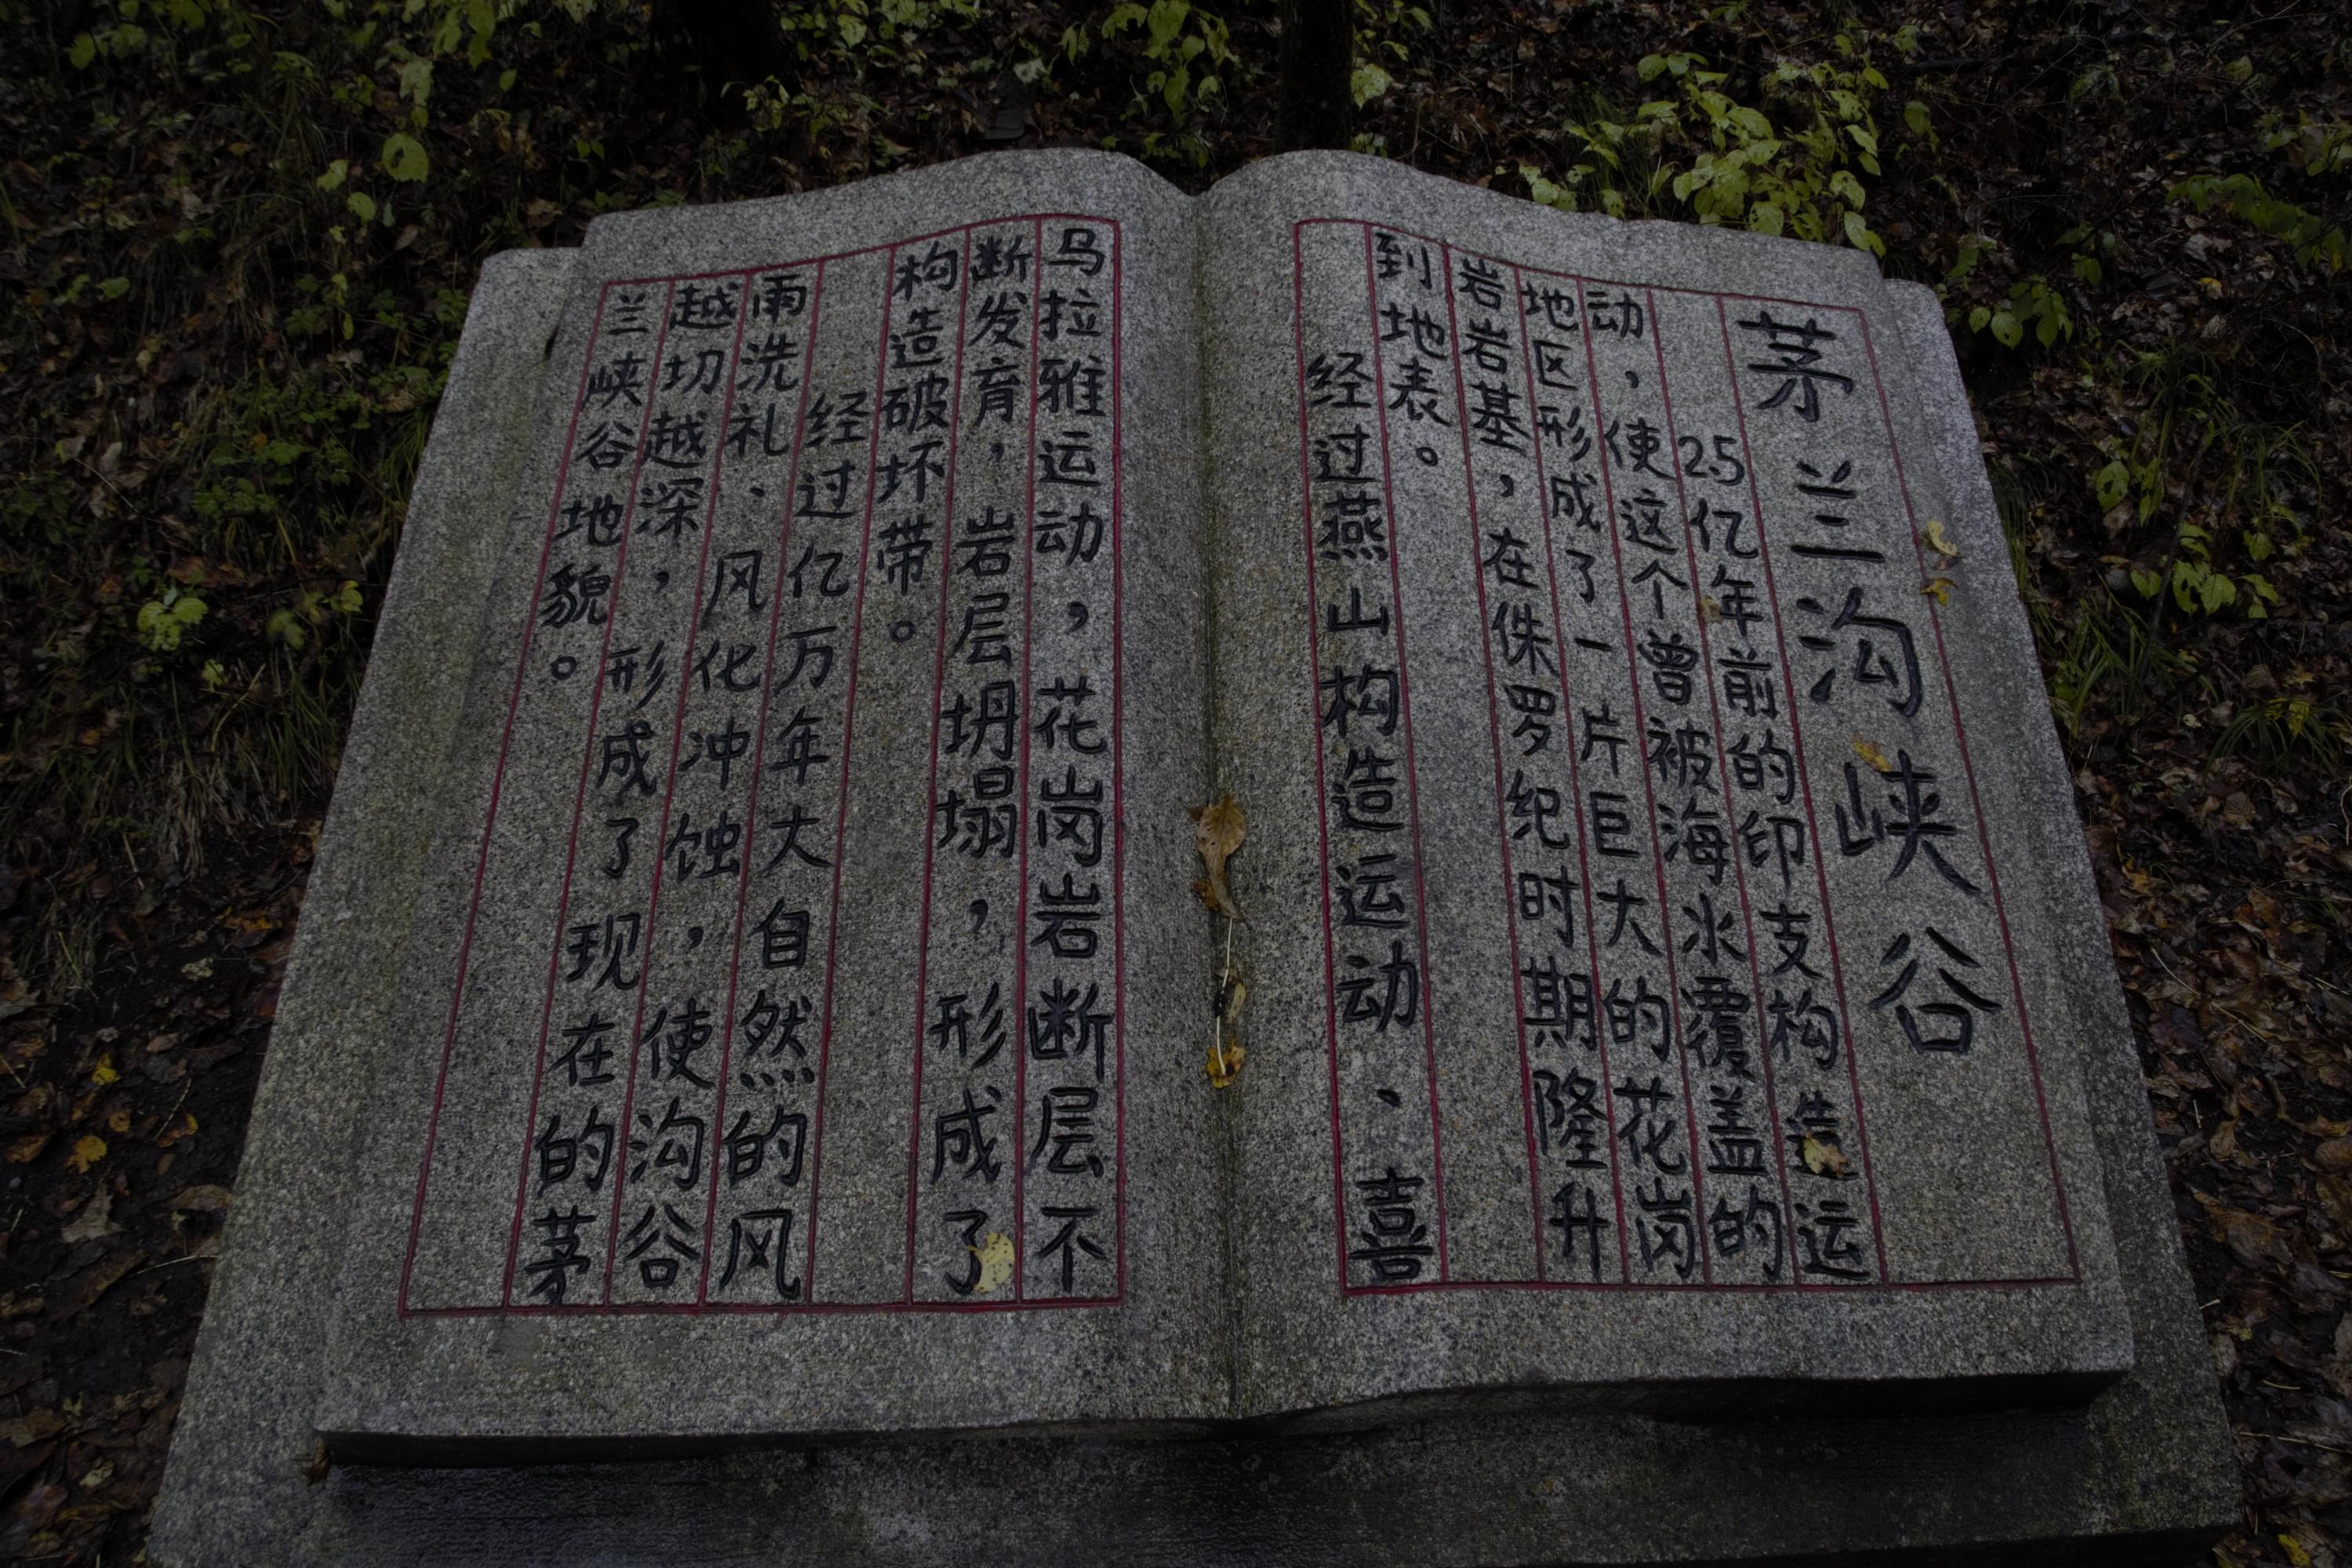 茅兰沟峡谷
2.5亿年前的印支构造运
动，使这个曾被海水覆盖的
地区形成了一片巨大的花岗
岩岩基，在侏罗纪时期隆升
到地表。
经过燕山构造运动、喜
马拉雅运动，花岗岩断层不
断发育，岩层坍塌，形成了
构造破坏带。
经过亿万年大自然的风
雨洗礼、风化冲蚀，使沟谷
越切越深，形成了现在的茅
兰峡谷地貌。